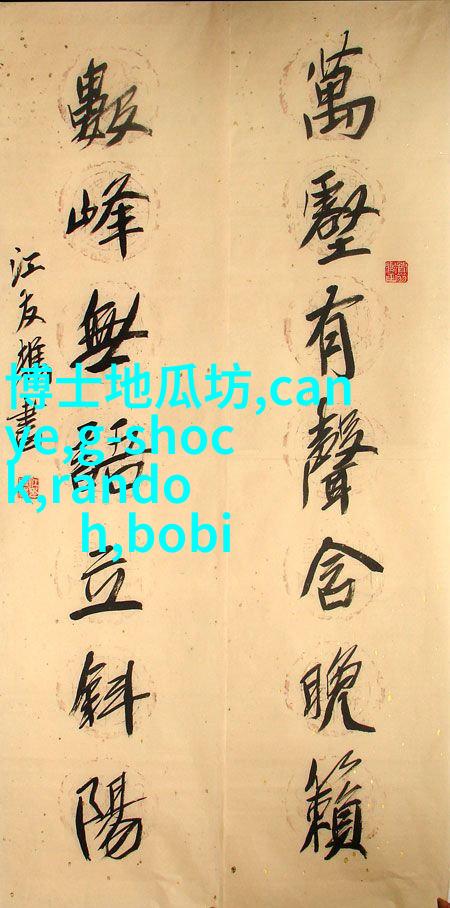 萬壑有聲含晚籟
數峰無語立斜陽
江友樵書
博士地瓜坊,can
ye,g-shoc
k,rando
h,bobi